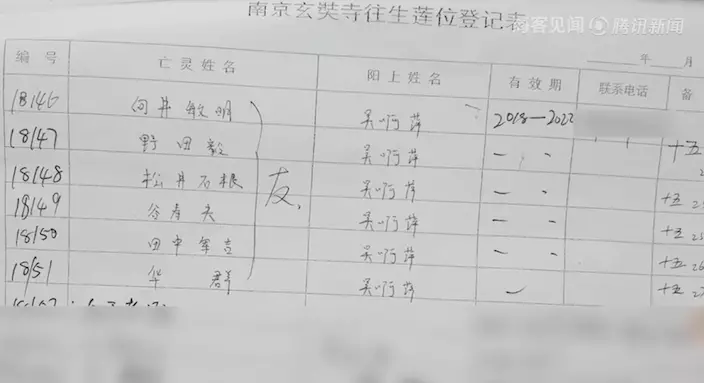 南京玄奘寺往生莲位登记表
每客见闻 腾讯新闻
年 月
编号 亡灵姓名 阳上姓名 有效期 联系电话 备
18146 向井敏明 吴啊萍 2018-2022
18147 野田毅 吴啊萍 - - 十五
18148 松井石根 吴啊萍 - - 十五
18149 谷寿夫 吴啊萍 - - 十五 25
18150 田中军吉 吴啊萍 - - 十五 26
18151 华群 吴啊萍 - 十五 27
友